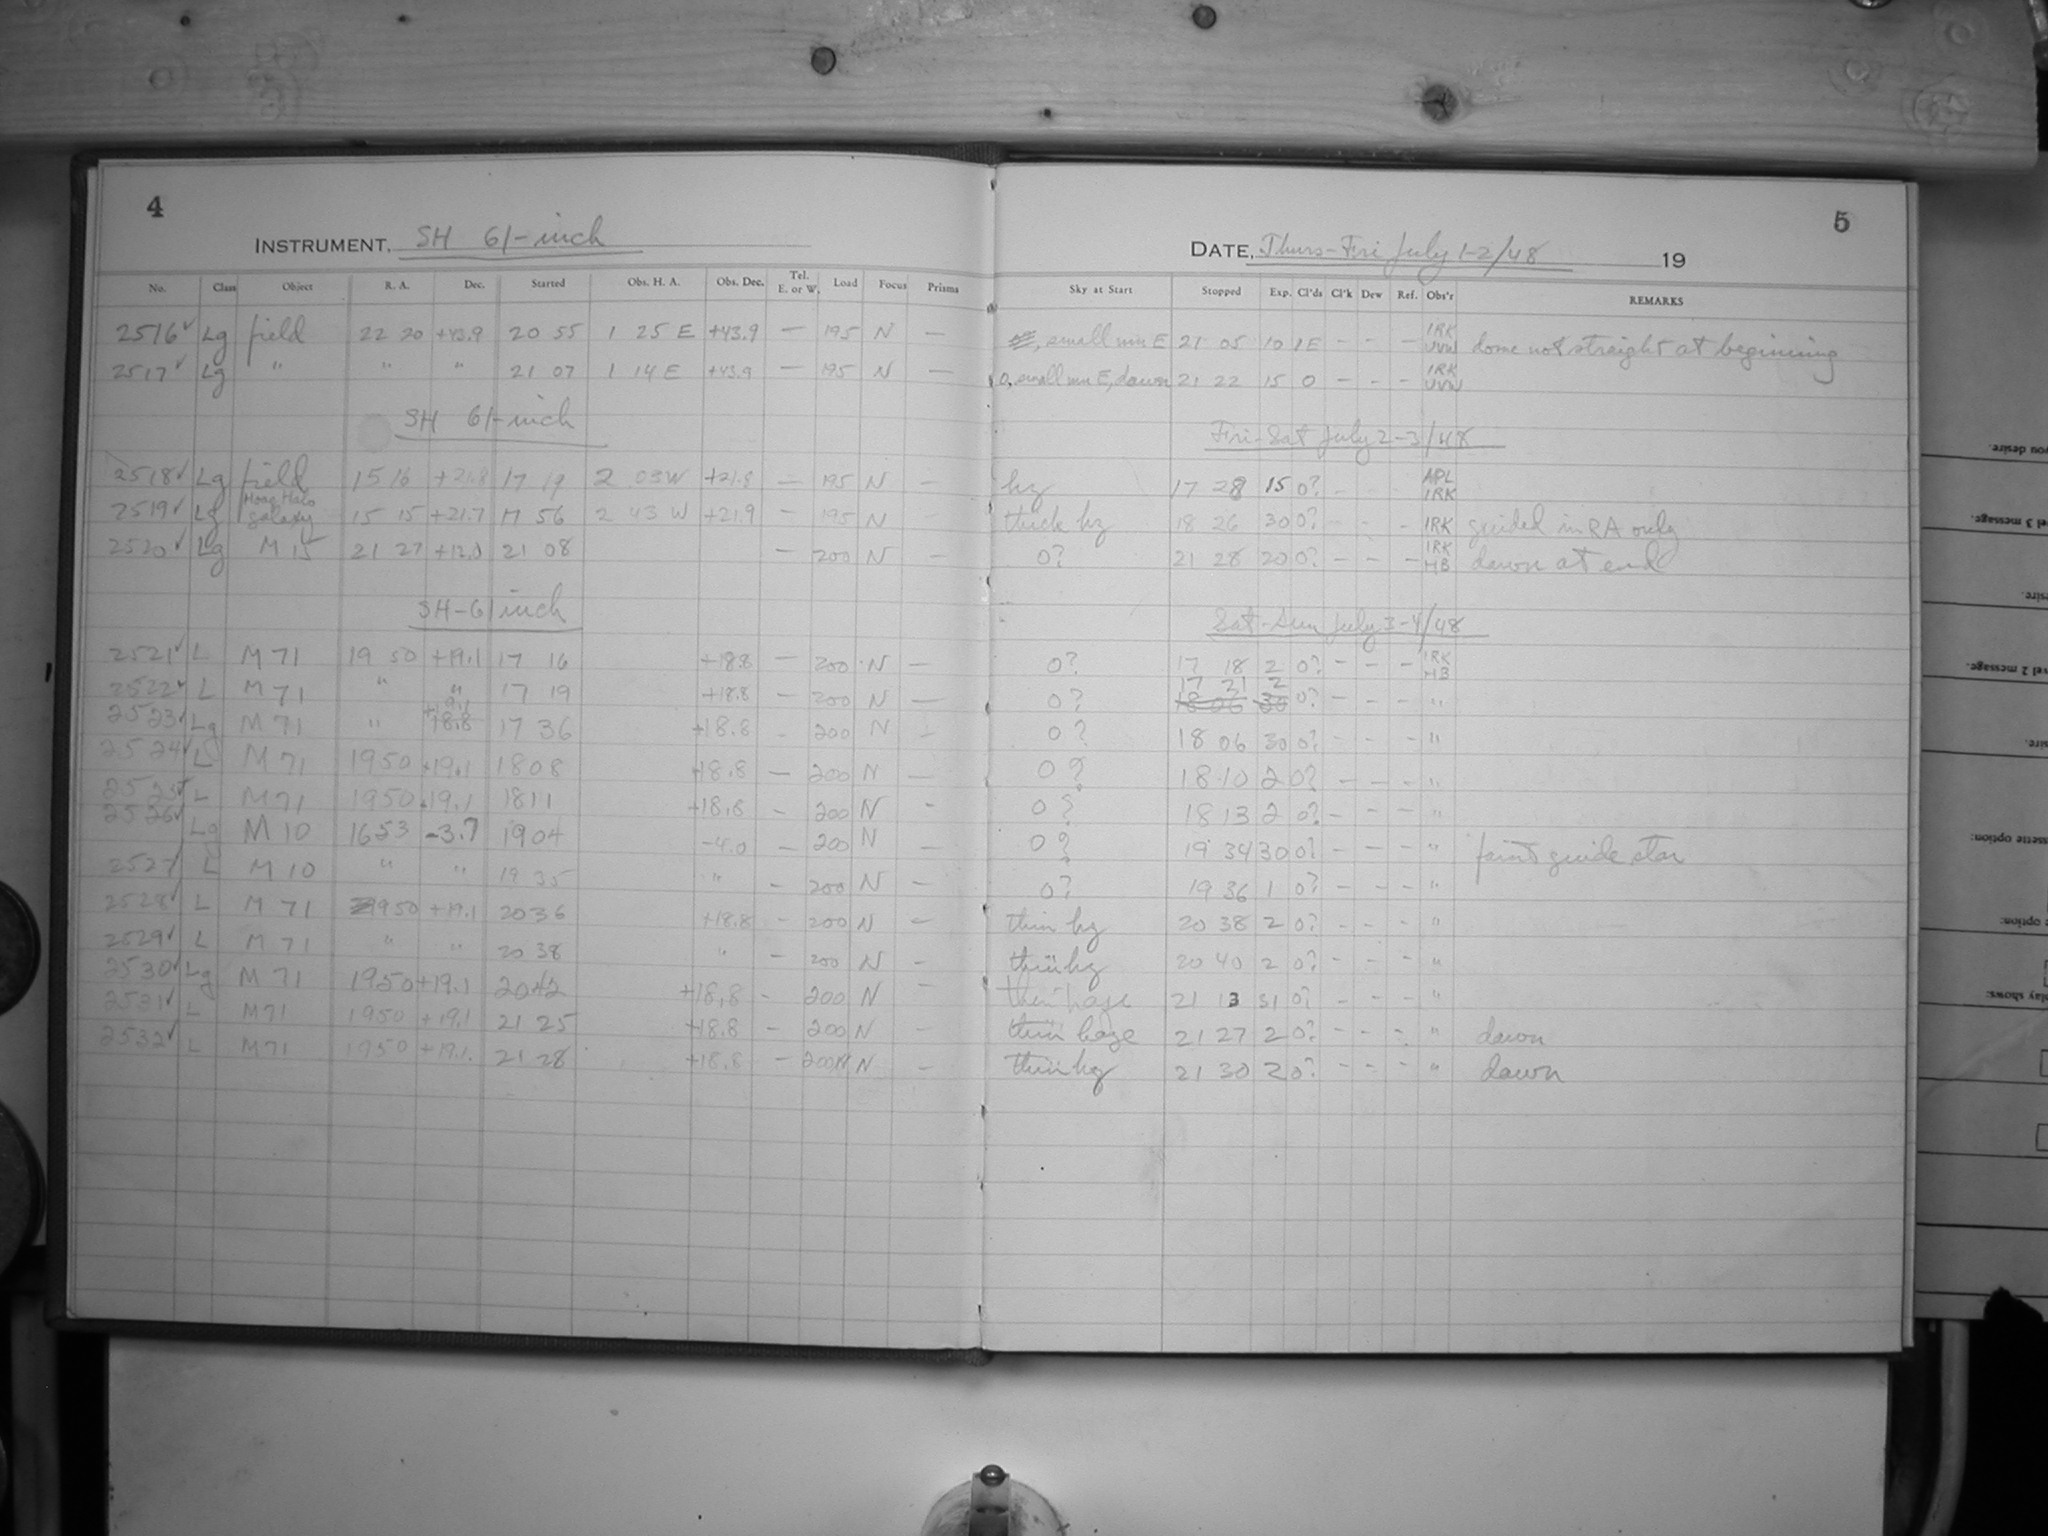 4
INSTRUMENT, SH 61-inch
No. Class Object R. A. Dec. Started Obs. H. A. Obs. Dec. Tel. E. or W. Load Focus Prisms
2516✓ Lg field 22 20 +43.9 20 55 1 25 E +43.9 — 195 N —
2517✓ Lg " " " 21 07 1 14 E +43.9 — 195 N —
SH 61-inch
2518✓ Lg field 15 16 +21.8 17 19 2 03 W +21.8 — 195 N —
2519✓ Lg Hoag Halo galaxy 15 15 +21.7 17 56 2 43 W +21.9 — 195 N —
2520✓ Lg M 15 21 27 +12.0 21 08 — 200 N —
SH-61 inch
2521✓ L M 71 19 50 +19.1 17 16 +18.8 — 200 N —
2522✓ L M 71 " " 17 19 +18.8 — 200 N —
2523✓ Lg M 71 " +19.1 +18.8 17 36 +18.8 - 200 N -
2524✓ L M 71 1950 +19.1 1808 +18.8 — 200 N —
2525✓ L M 71 1950 +19.1 1811 +18.8 - 200 N -
2526✓ Lg M 10 1653 -3.7 1904 -4.0 - 200 N —
2527✓ L M 10 " " 19 35 " - 200 N —
2528✓ L M 71 1950 +19.1 2036 +18.8 - 200 N —
2529✓ L M 71 " " 20 38 " - 200 N —
2530✓ Lg M 71 1950 +19.1 2042 +18.8 - 200 N —
2531✓ L M71 1950 +19.1 21 25 +18.8 - 200 N —
2532✓ L M71 1950 +19.1 21 28 +18.8 - 200 N N —
5
DATE, Thurs-Fri July 1-2/48 19
Sky at Start Stopped Exp. Cl'ds Cl'k Dew Ref. Obs'r REMARKS
, small mn E 21 05 10 1E - - - IRK UVW dome not straight at beginning
0, small mn E, dawn 21 22 15 0 - - - IRK UVW
Fri-Sat July 2-3/48
hz 17 28 15 0? - - - APL IRK
thick hz 18 26 30 0? - - - IRK guided in RA only
0? 21 28 20 0? - - - IRK HB dawn at end
Sat-Sun July 3-4/48
0? 17 18 2 0? - - - IRK HB
0? 17 21 2 18 06 30 0? - - - "
0? 18 06 30 0? - - - "
0? 18 10 2 0? - - - "
0? 18 13 2 0? - - - "
0? 19 34 30 0? - - - " faint guide star
0? 19 36 1 0? - - - "
thin hz 20 38 2 0? - - - "
thin hz 20 40 2 0? - - - "
thin haze 21 13 31 0? - - - "
thin haze 21 27 2 0? - - - " dawn
thin hz 21 30 2 0? - - - " dawn
you desire.
vel 3 message.
sire.
vel 2 message.
sire.
ssette option:
e option:
play shows: